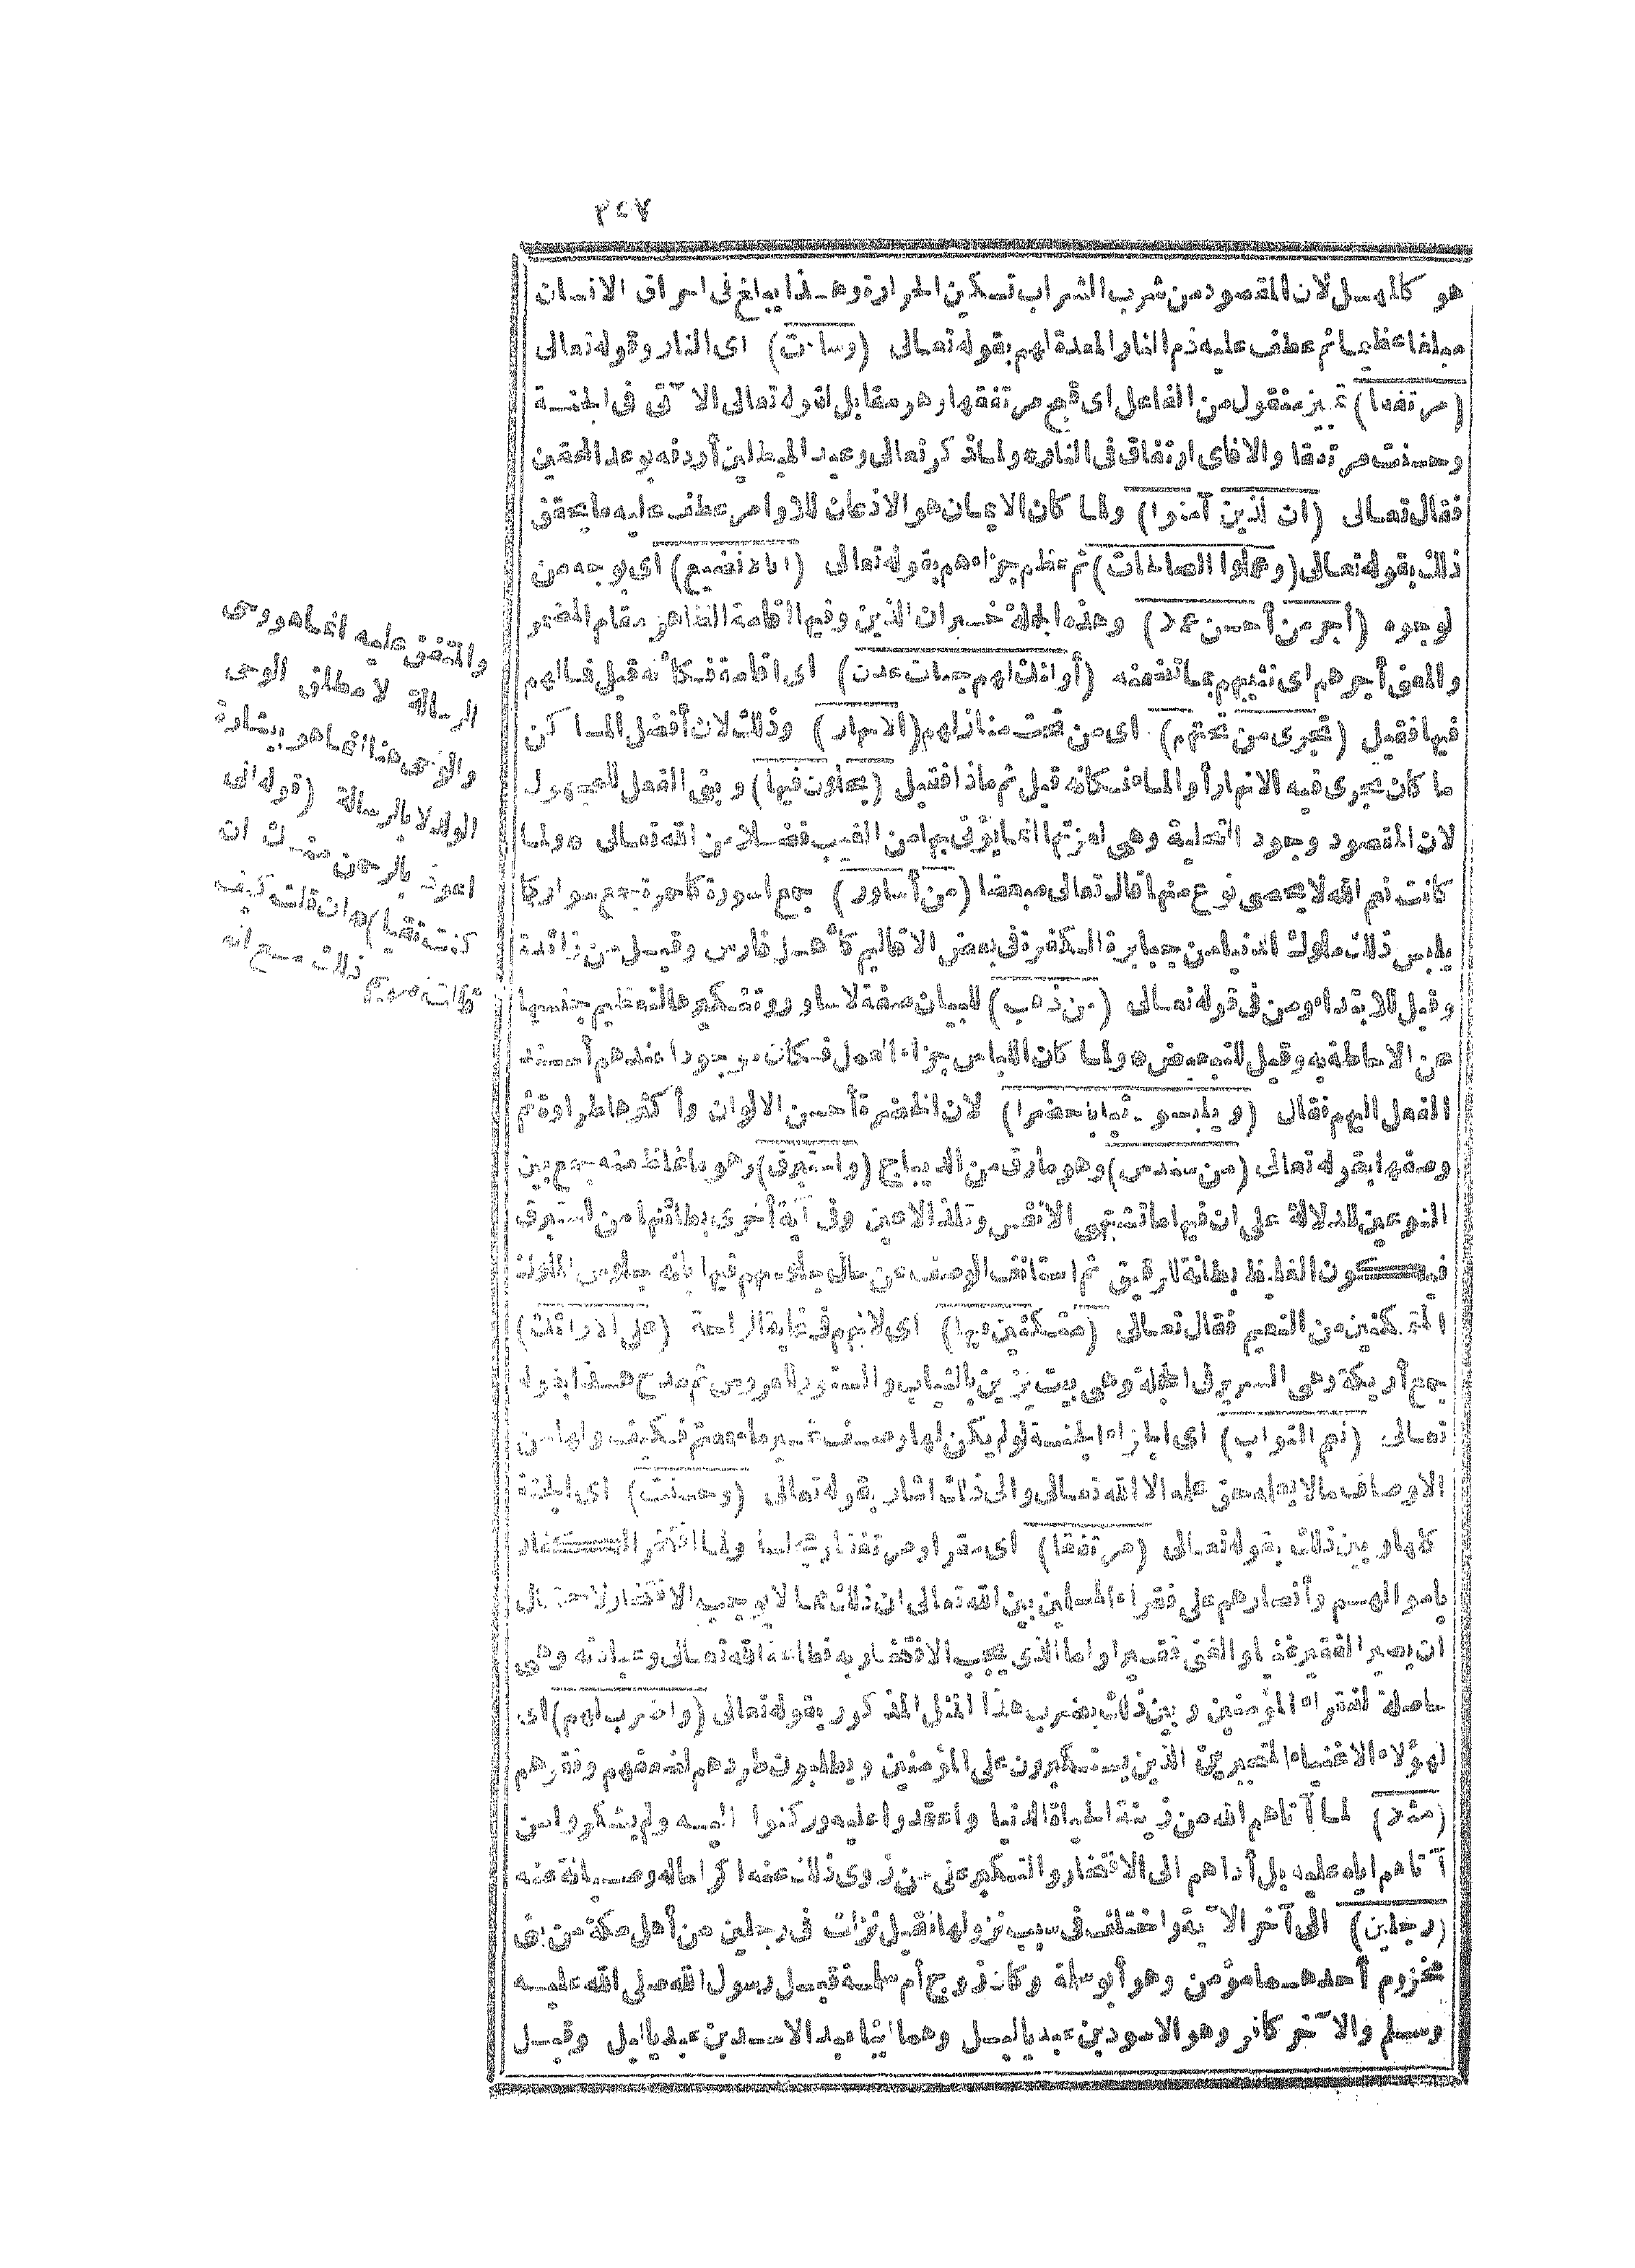 ٣٤٧
هو كالمهل لان المقصود من شرب الشراب تسكين الحرارة وهذا يبلغ فى احراق الانسان
مبلغا عظيما ثم عطف عليه ذم النار المعدة لهم بقوله تعالى (وساءت) اى النار وقوله تعالى
(مرتفقا) تمييز منقول من الفاعل اى قبح مرتفقها وهو مقابل لقوله تعالى الآتى فى الجنة
وحسنت مرتفقا والا فاى ارتفاق فى النار ولما ذكر تعالى وعيد المبطلين أردفه بوعد المحقين
فقال تعالى (ان الذين آمنوا) ولما كان الايمان هو الاذعان للاوامر عطف عليه ما يحقق
ذلك بقوله تعالى (وعملوا الصالحات) ثم عظم جزاءهم بقوله تعالى (انا لا نضيع) اى بوجه من
لوجوه (أجر من أحسن عملا) وهذه الجملة خبر ان الذين وفيها اقامة الظاهر مقام المضمر
والمعنى أجرهم اى نثيبهم بما تضمنه (أولئك لهم جنات عدن) اى اقامة فكأنه قيل فما لهم
فيها فقيل (تجرى من تحتهم) اى من تحت منازلهم (الانهار) وذلك لان أفضل المساكن
ما كان يجرى فيه الانهار أو الماء فكانه قيل ثم ماذا فقيل (يحلون فيها) وبنى الفعل للمجهول
لان المقصود وجود التحلية وهى لعزتها انما يؤتى بها من الغيب فضلا من الله تعالى ولما
كانت نعم الله لا يحصى نوع منها قال تعالى مبعضا (من أساور) جمع اسورة كاحمرة جمع سوار كما
يلبس ذلك ملوك الدنيا من جبابرة الكفرة فى بعض الاقاليم كأهل فارس وقيل من زائدة
وقيل للابتداء ومن فى قوله تعالى (من ذهب) للبيان صفة لاساور وتنكيرها لتعظيم جنسها
عن الاحاطة به وقيل للتبعيض ولما كان اللباس جزاء العمل فكان موجودا عندهم أسند
الفعل اليهم فقال (ويلبسون ثيابا خضرا) لان الخضرة أحسن الالوان وأكثرها طراوة ثم
وصفها بقوله تعالى (من سندس) وهو ما رق من الديباج (واستبرق) وهو ما غلظ منه جمع بين
النوعين للدلالة على ان فيها ما تشتهى الانفس وتلذ الاعين وفى آية أخرى بطائنها من استبرق
فيكون الغليظ بطانة للرقيق ثم استأنف الوصف عن حال جلوسهم فيها بانه جلوس الملوك
المتمكنين من النعيم فقال تعالى (متكئين فيها) اى لانهم فى غاية الراحة (على الارائك)
جمع أريكة وهى السرير فى الحجلة وهى بيت يزين بالثياب والستور للعروس ثم مدح هذا بقوله
تعالى (نعم الثواب) اى الجزاء الجنة لو لم يكن لها وصف غير ما سمعتم فكيف ولها من
الاوصاف ما لا يعلمه حق علمه الا الله تعالى والى ذلك اشار بقوله تعالى (وحسنت) اى الجنة
كلها وبين ذلك بقوله تعالى (مرتفقا) اى مقرا ومرتفقا ومجلسا ولما افتخر الكفار
باموالهم وأنصارهم على فقراء المسلمين بين الله تعالى ان ذلك مما لا يوجب الافتخار لاحتمال
ان يصير الفقير غنيا والغنى فقيرا واما الذى يجب الافتخار به فطاعة الله تعالى وعبادته وهى
حاصلة لفقراء المؤمنين وبين ذلك بضرب هذا المثل المذكور بقوله تعالى (واضرب لهم) اى
لهؤلاء الاغنياء المتجبرين الذين يستكبرون على المؤمنين ويطلبون طردهم لضعفهم وفقرهم
(مثلا) لما آتاهم الله من زينة الحياة الدنيا واعتمدوا عليه وركنوا اليه ولم يشكروا من
آتاهم اياه عليه بل أداهم الى الافتخار والتكبر على من زوى ذلك عنه اكراما له وصيانة عنه
(رجلين) الى آخر الآية واختلف فى سبب نزولها فقيل نزلت فى رجلين من أهل مكة من بنى
مخزوم أحدهما مؤمن وهو أبو سلمة وكان زوج أم سلمة قبل رسول الله صلى الله عليه
وسلم والآخر كافر وهو الاسود بن عبد ياليل وهما ابنا عبد الاسد بن عبد ياليل وقيل
والمتفق عليه انما هو وحى
الرسالة لا مطلق الوحى
والوحى هنا انما هو ببشارة
الولد لا بالرسالة (قوله انى
اعوذ بالرحمن منك ان
كنت تقيا) ان قلت كيف
قالت مريم ذلك مع انه